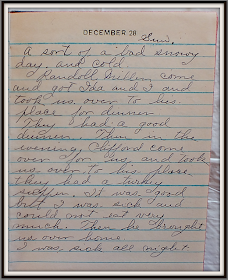 DECEMBER 28
Sun.
A sort of a bad snowy
day. and cold.
Randoll come
and got Ida and I and
took us over to his
place for dinner
They had a good
dinner. Then in the
evening, Clifford come
over for us, and took
us over to his place
they had a turkey
supper. It was good
but I was sick and
could not eat very
much. Then he brought
us over home.
I was sick all night